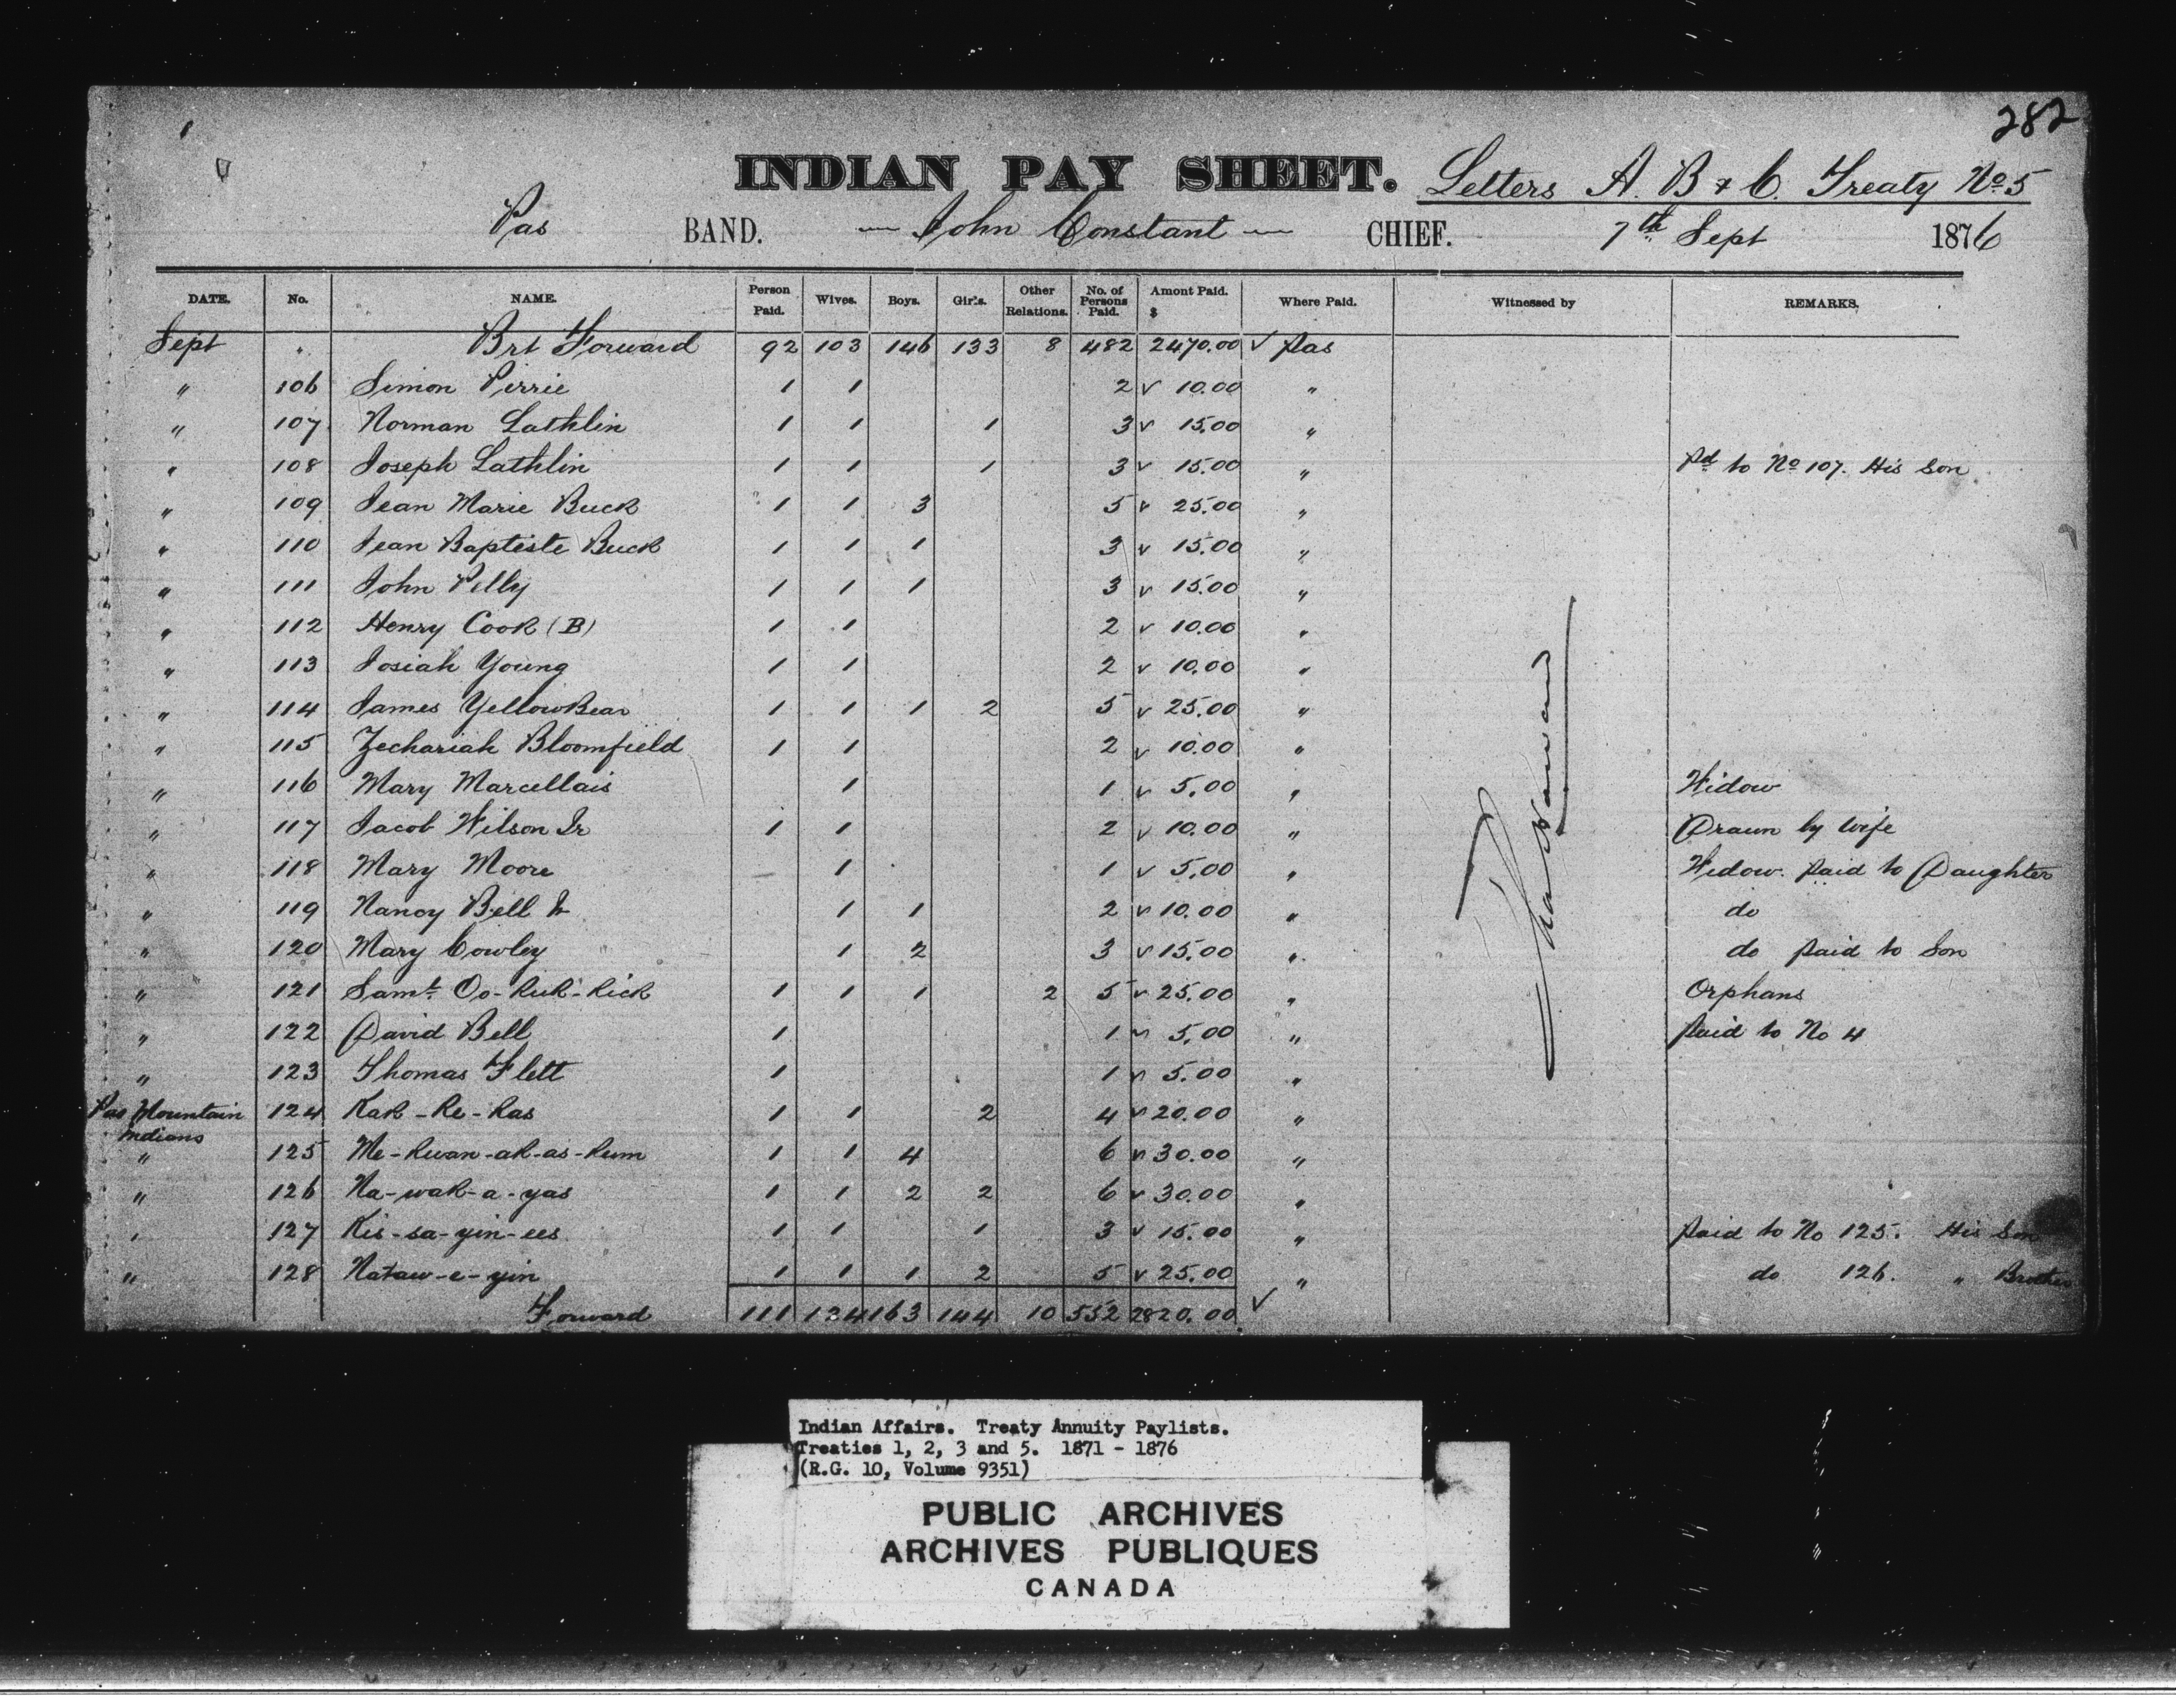 282
INDIAN PAY SHEET. Letters A. B & C. Treaty No 5
Pas BAND. — John Constant — CHIEF. 7th Sept 1876
DATE. No. NAME. Person Paid. Wives. Boys. Girls. Other Relations. No. of Persons Paid. Amont Paid. $ Where Paid. Witnessed by REMARKS.
Sept Brt Forward 92 103 146 133 8 482 2470.00 ✓ Pas
" 106 Simon Pirrie 1 1 2 ✓ 10.00 "
" 107 Norman Lathlin 1 1 1 3 ✓ 15.00 "
" 108 Joseph Lathlin 1 1 1 3 ✓ 15.00 " Pd to No 107. His Son
" 109 Jean Marie Buck 1 1 3 5 ✓ 25.00 "
" 110 Jean Baptiste Buck 1 1 1 3 ✓ 15.00 "
" 111 John Pelly 1 1 1 3 ✓ 15.00 "
" 112 Henry Cook (B) 1 1 2 ✓ 10.00 "
" 113 Josiah Young 1 1 2 ✓ 10.00 "
" 114 James YellowBear 1 1 1 2 5 ✓ 25.00 "
" 115 Zechariah Bloomfield 1 1 2 ✓ 10.00 "
" 116 Mary Marcellais 1 1 ✓ 5.00 " Widow
" 117 Jacob Wilson Jr 1 1 2 ✓ 10.00 " Drawn by wife
" 118 Mary Moore 1 1 ✓ 5.00 " Widow. Paid to Daughter
" 119 Nancy Bell Jr 1 1 2 ✓ 10.00 " do
" 120 Mary Cowley 1 2 3 ✓ 15.00 " do Paid to Son
" 121 Saml. Oo-kuk-kick 1 1 1 2 5 ✓ 25.00 " Orphans
" 122 David Bell 1 1 ✓ 5.00 " Paid to No 4
" 123 Thomas Flett 1 1 ✓ 5.00 "
Pas Mountain Indians 124 Kak-ke-kas 1 1 2 4 ✓ 20.00 "
" 125 Me-kwan-ak-as-kum 1 1 4 6 ✓ 30.00 "
" 126 Na-wak-a-yas 1 1 2 2 6 ✓ 30.00 "
" 127 Kis-sa-yin-ees 1 1 1 3 ✓ 15.00 " Paid to No 125. His Son
" 128 Nataw-e-yin 1 1 1 2 5 ✓ 25.00 " do 126. " Brother
Forward 111 124 163 144 10 552 2820.00 ✓
Indian Affairs. Treaty Annuity Paylists.
Treaties 1, 2, 3 and 5. 1871 - 1876
(R.G. 10, Volume 9351)
PUBLIC ARCHIVES
ARCHIVES PUBLIQUES
CANADA